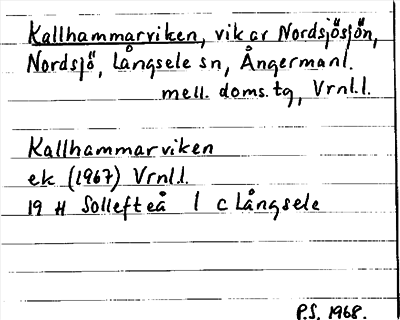 Kallhammarviken, vik av Nordsjösjön,
Nordsjö, Långsele sn, Ångermanl.
mell. doms. tg, Vrnl.l.
Kallhammarviken
ek (1967) Vrnl.l.
19 H Sollefteå 1 c Långsele
P.S. 1968.